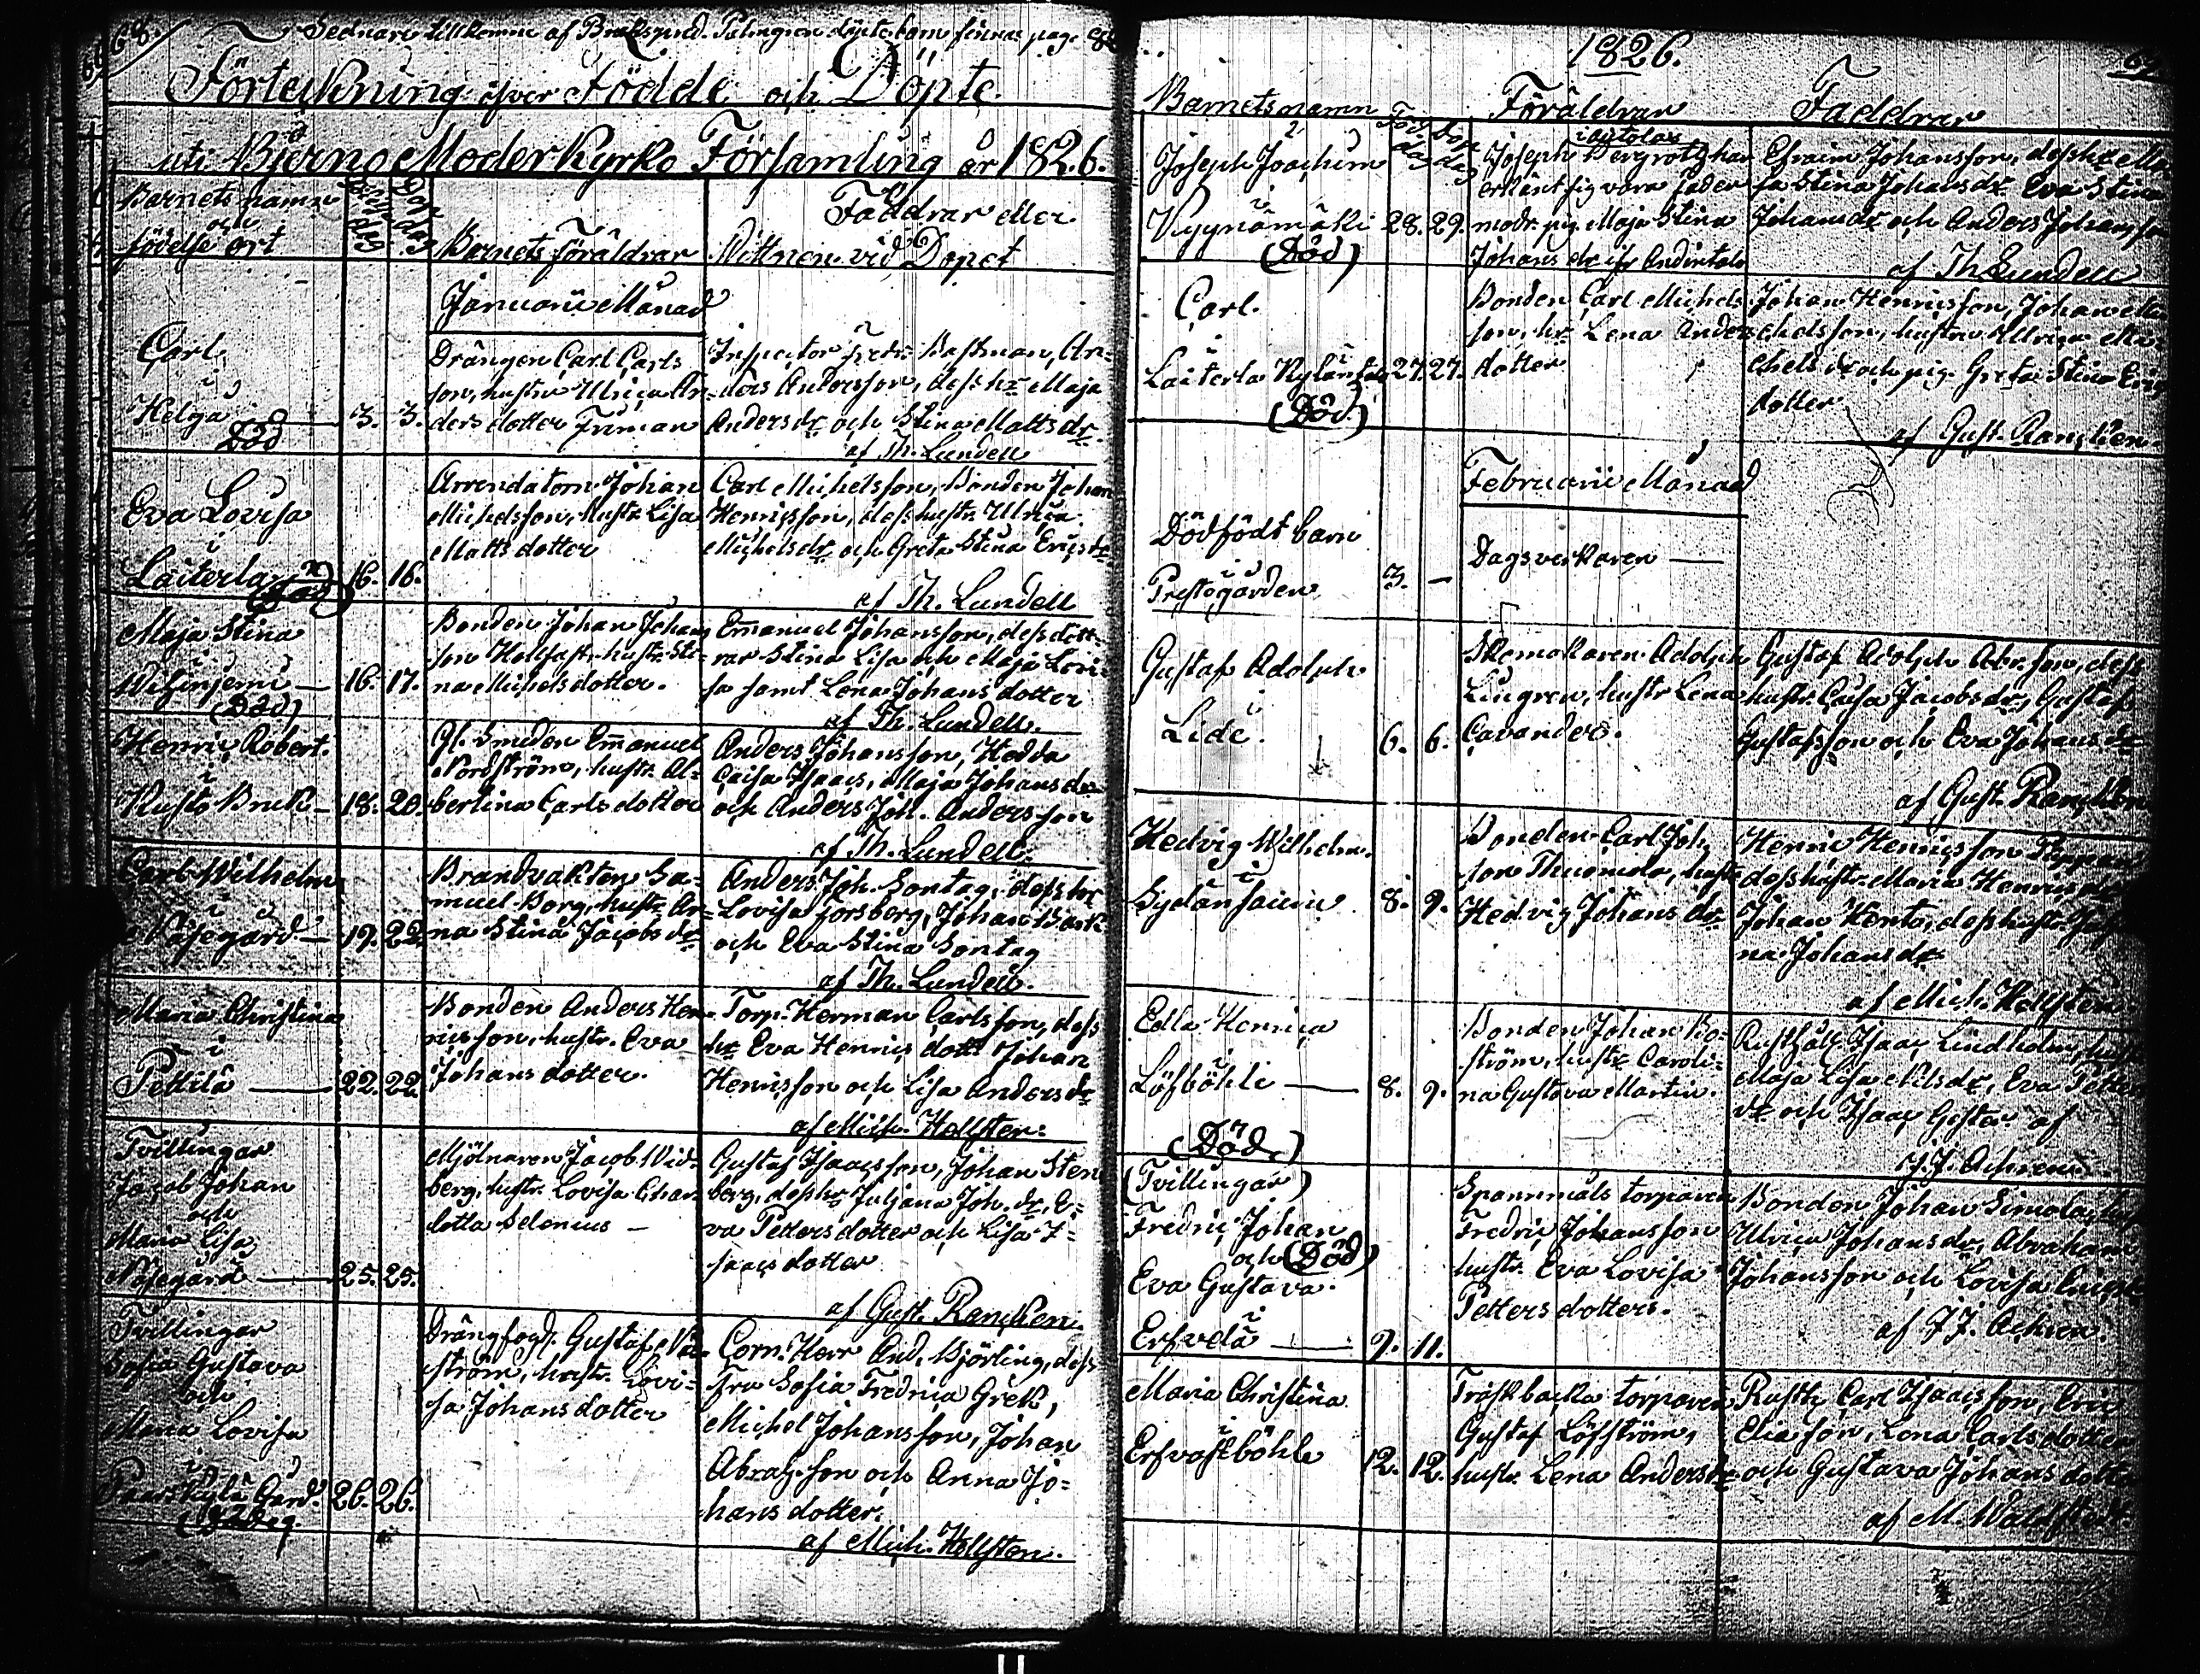 68.
Sednare tillkomne af Bruks pred. Palmgren döpte barn finnas pag. 8
Förtekning öfver Födde och Döpte
uti Bjerno Moder Kyrko Församling år 1826.
Barnets namn
och
födelse ort
Födelse dag
Dop dag
Barnets föräldrar
Faddrar eller
Vittnen vid Dopet
Januarii Månad
Carl
i
Helga 3. 3.
Död
Drängen Carl Carls
son, hustru Ulrica An-
ders dotter Friman
Inspector Fredr. Bastman, An-
ders Andersson, dess hr Maja
Anders dr och Stina Matts dr
af Th. Lundell
Eva Lovisa
i
Laiterla 16. 16.
(Död)
Arrendatorn Johan
Michelsson, hustr. Lisa
Matts dotter
Carl Michelsson, Bonden Johan
Henricsson, dess hustr. Ulrica
Michels dr och Greta Stina Erics dr
af Th. Lundell
Maja Stina
i
Viksinjemi 16. 17.
(Död)
Bonden Johan Johans
son Hollfast, hustr. Sti-
na Michels dotter.
Emanuel Johansson, dess dött-
rar Stina Lisa och Maja Lovi-
sa samt Lena Johans dotter
af Th. Lundell.
Henric Robert.
i
Kusto Bruk 18. 20.
Gl. Smeden Emanuel
Nordström, hustr. Al-
bertina Carls dotter
Anders Johansson, Hedda
Caisa Isaacs, Maja Johans dr
och Anders Joh. Andersson
af Th. Lundell.
Carl Wilhelm
i
Näsegård 19. 22.
Brandvakten Sa-
muel Borg, hustr. An-
na Stina Jacobs dr
Anders Joh. Sontag, dess hr
Lovisa Forsberg, Johan Bark
och Eva Stina Sontag
af Th. Lundell.
Maria Christina
i
Pettilä 22. 22.
Bonden Anders Hen-
ricsson, hustr. Eva
Johans dotter.
Torp. Herman Carlsson, dess
hr Eva Henrics dott. Johan
Henricsson och Lisa Anders dr
af Mich. Hollsten.
Tvillingar
Jacob Johan
och
Maria Lisa
Näsegård 25. 25.
Mjölnaren Jacob Wid-
berg, hustr. Lovisa Char-
lotta Selenius
Gustaf Isaacsson, Johan Sten
berg, dess hr Juljana Joh. dr, E-
va Petters dotter och Lisa I-
saacs dotter
af Gust. Rancken.
Tvillingar
Sofia Gustava
och
Maria Lovisa
i
Gård. 26. 26.
Drängfogd. Gustaf
ström, hustr. Lovi-
sa Johans dotter
Corn. Herr And. Björling, dess
fru Sofia Fredrica Grek,
Michel Johansson, Johan
Abrah. son och Anna Jo-
hans dotter.
af Mich. Hollsten.
1826.
69
Barnets namn
Föd. dag
Dop dag
Föräldrar
Faddrar
Joseph Joachim
i
Kyynämäki 28. 29.
(Död)
Joseph Bergroth har
erkänt sig vara fader
modr. pig. Maja Stina
Johans dr
Efraim Johansson, dess hr Ma-
ja Stina Johans dr Eva Stina
Johans dr och Anders Johansson
af Th Lundell
Carl.
i
Laiterla Kylänpää 27. 27.
(Död.)
Bonden Carl Michels
son, hr Lena Anders
dotter
Johan Henricsson, Johan Mi-
chelsson, hustru Ulrica Mi-
chels dr och pig. Greta Stina Erics
dotter
af Gust. Rancken.
Februarii Månad
Dödfödt barn
i
Prestegården 3. —
Dagsverkaren
Gustaf Adolph
i
Lide. 6. 6.
Skomakaren Adolph
Lingren, hustr. Lena
Cavander.
Gustaf Adolph Abr. son, dess
hustr. Caisa Jacobs dr, Gustaf
Gustafsson och Eva Johans dr
af Gust. Rancken
Hedvig Wilhelm.
i
8. 9.
Bonden Carl Joh.
son hustr
Hedvig Johans dr
Henric Henricsson
dess hustr. Maria Henrics dr
Johan Kento, dess hustr.
na Johans dr
af Mich. Hollsten
Edla Henrica
i
Löfböhle 8. 9.
(Död.)
Bonden Johan Bo-
ström, hustr Caroli-
na Gustava Martin.
Rusth. Isaac Lindholm, hustr
Maja Lisa Nils dr, Eva Petters
dr och Isaac Gustav. af
J. J. Achren
(Tvillingar)
Fredric Johan
och (Död)
Eva Gustava.
i
Erfvelä 9. 11.
Spannmåls torparen
Fredric Johansson
hustr. Eva Lovisa
Petters dotter.
Bonden Johan Simola, hust
Ulrica Johans dr, Abraham
Johansson och Lovisa
af J. J. Achren.
Maria Christina
i
Erfvastböhle 12. 12.
Träskbacka torparen
Gustaf Löfström,
hustr. Lena Anders dr
Rusth. Carl Isaacsson, Eric
Eliasson, Lena Carls dotter
och Gustava Johans dotter
af M. Wadstedt.